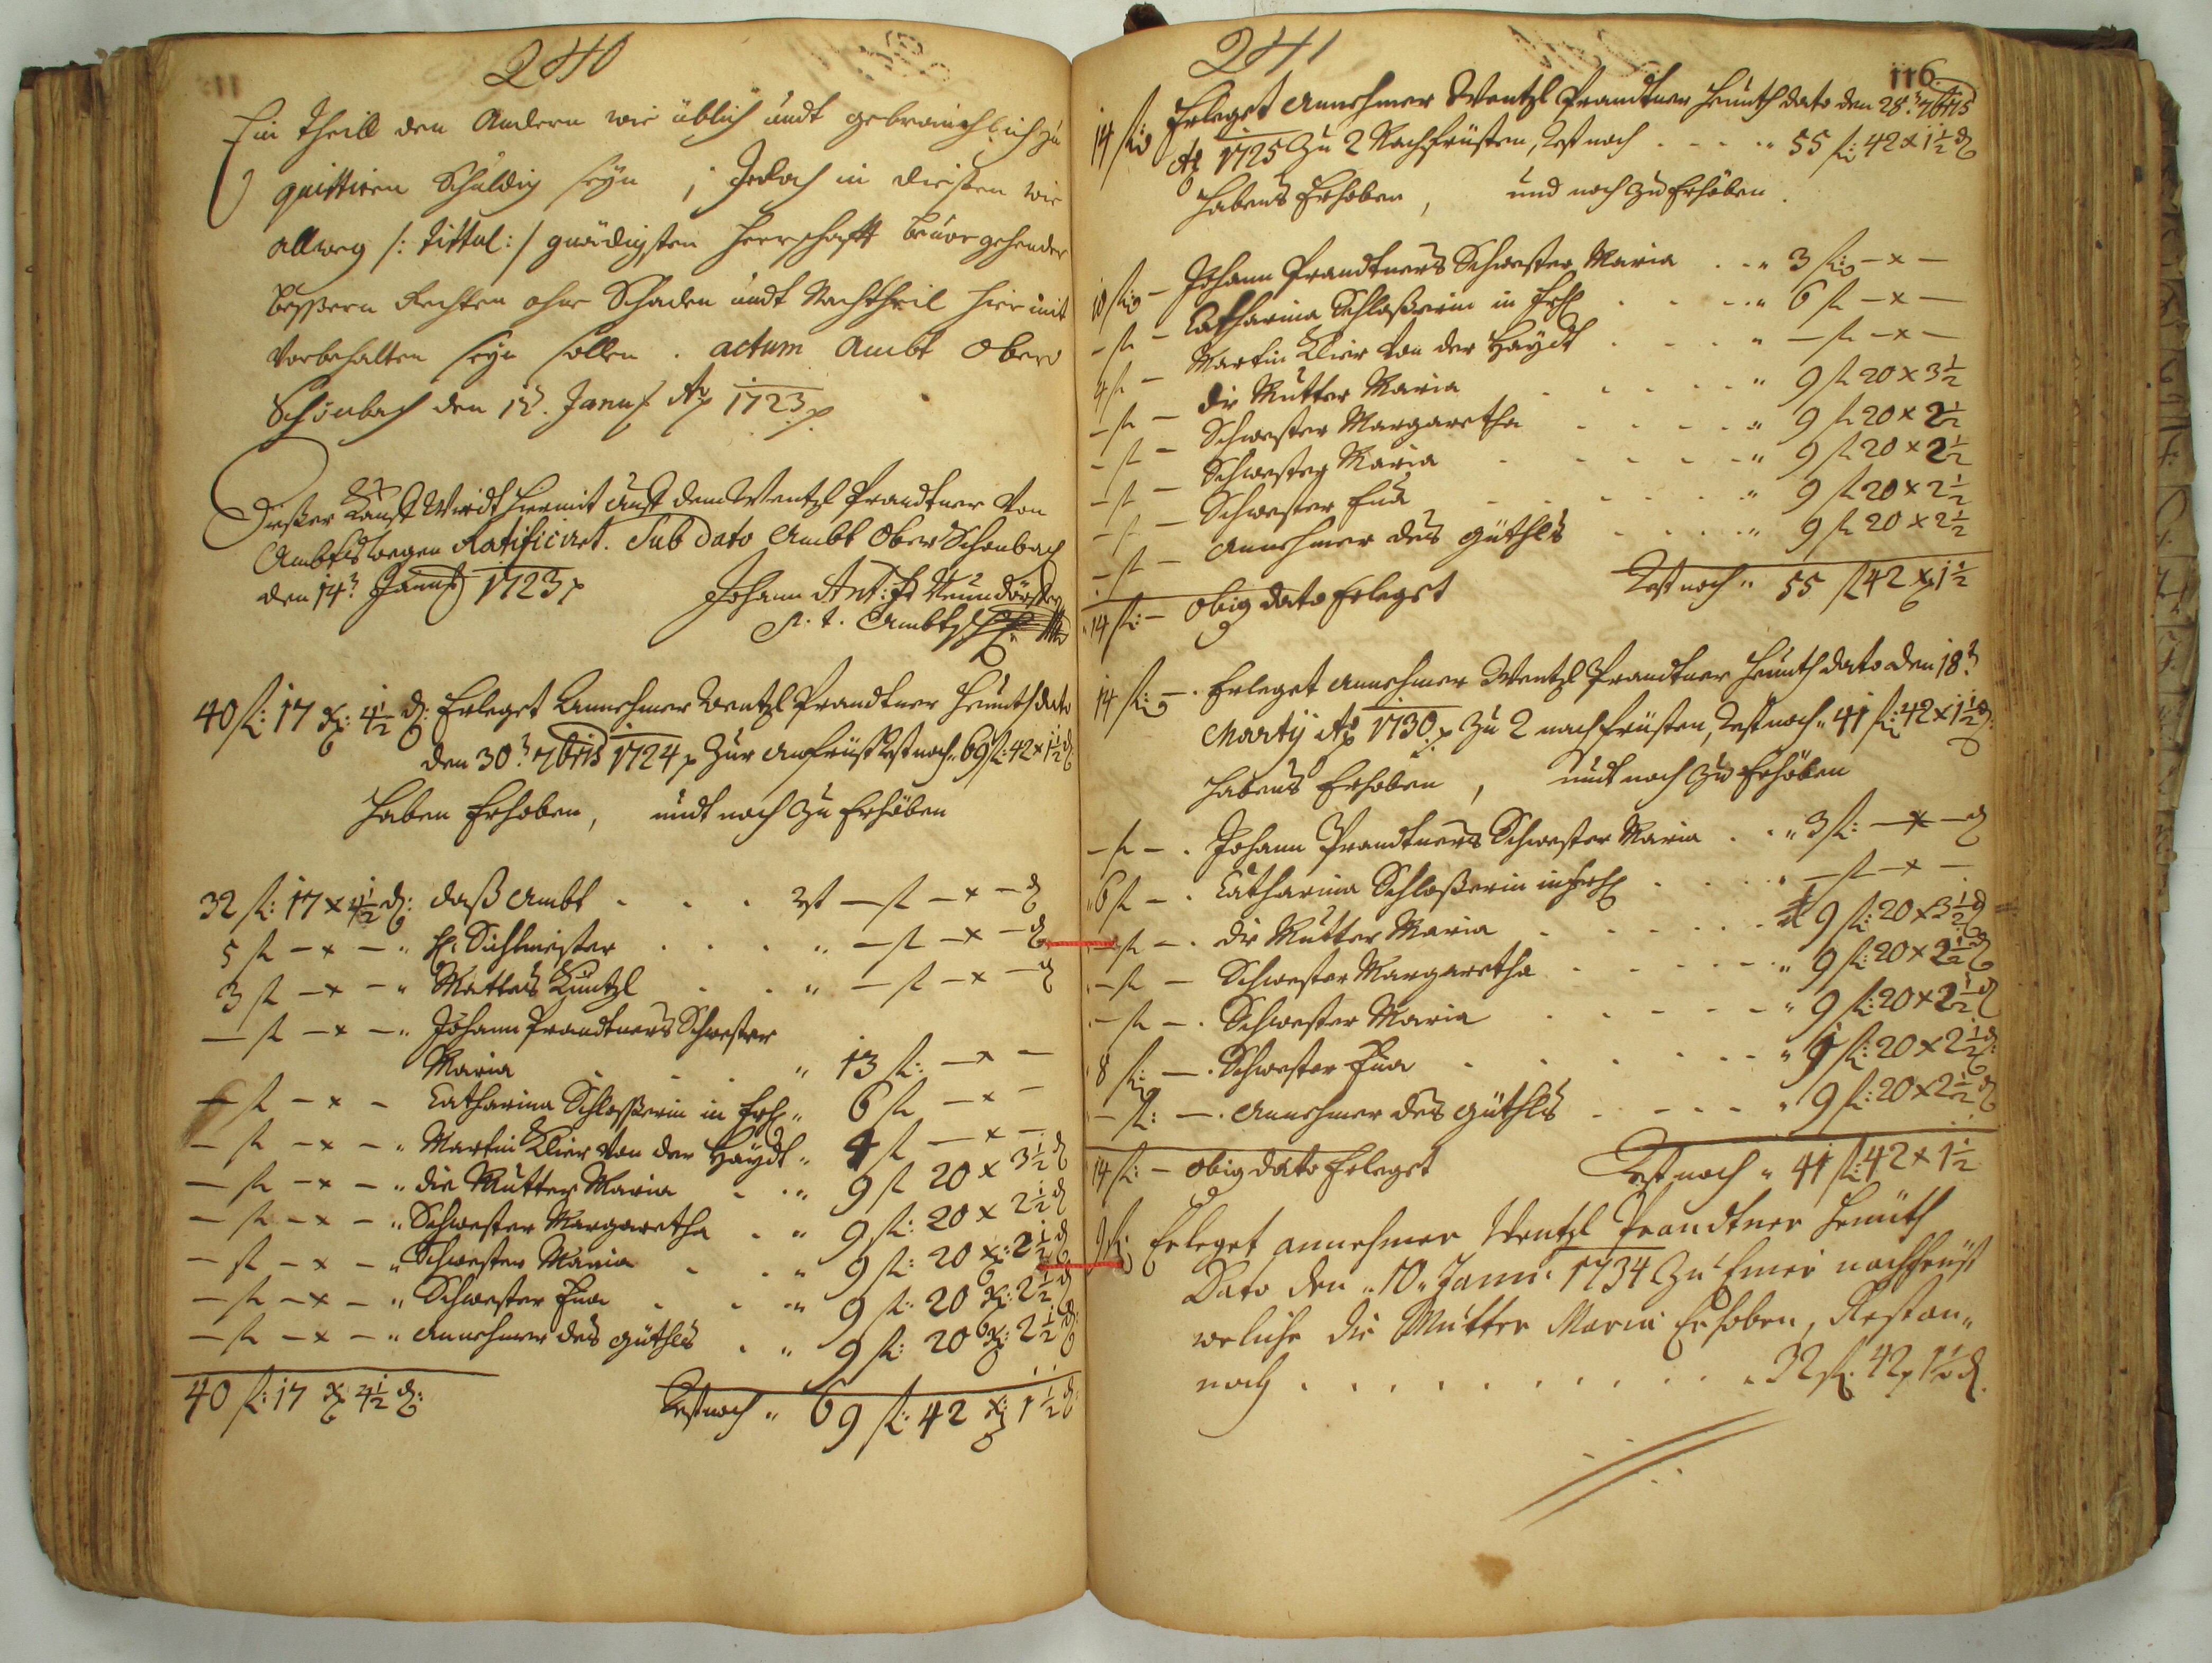 240
Ein Theill den Andern wie üblich undt gebräuchlich zu
quittiren Schuldig seyn ; Jedoch in dießen wie
allweg /: Tittul :/ gnädigsten Herrschafft bevorgehender
beßern Rechten ohne Schaden undt Nachtheil hiermit
Vorbehalten seyn sollen . actum Ambt Ober
Schönbach den 12. Janu: Ao 1723 p
Dießer Kauff Wirdt hiermit auff dem Wentzl Prandtner Von
Ambtswegen Ratificiret. Sub dato Ambt Ober Schönbach
den 14ten Janu: 1723 p Johann Ant: Neundörffer
p. t. Ambts
40 fl: 17 x: 4½ d: Erleget Annehmer Wentzl Prandtner Heuth dato
den 30ten 7bris 1724 p Zur Anfrüst Rest noch " 69 fl: 42 x 1½ d
Haben Erhoben, undt noch Zu Erhöben
32 fl: 17 x 4½ d: daß Ambt . . . rst — fl — x — d
5 fl — x — " H: Sichlmeister . . . . " — fl — x — d
3 fl — x — " Mattes Küntzl . . " — fl — x — d
— fl — x — " Johann Prandtners Schwester
Maria . . . " 13 fl: — x —
— fl — x — Catharina Schloßerin in " 6 fl — x —
— fl — x — " Martin Klier Von der Haydt " 4 fl — x —
— fl — x — " die Mutter Maria . . " 9 fl 20 x 3½ d
— fl — x — " Schwester Margaretha . " 9 fl: 20 x 2½ d
— fl — x — " Schwester Maria . . " 9 fl: 20 x: 2½ d
— fl — x — " Schwester Eua . . " 9 fl: 20 x: 2½ d
— fl — x — " Annehmer des güthls . " 9 fl: 20 x: 2½ d:
40 fl: 17 x 4½ d: Rest noch " 69 fl: 42 x: 1½ d
241
116
14 fl: Erleget Annehmer Wentzl Prandtner Heuth dato den 28ten 7bris
Ao 1725 Zu 2 Nachfrüsten, Rest noch . . . . " 55 fl: 42 x 1½ d
habens Erhoben , und noch Zu Erhöben .
10 fl: — Johann Prandtners Schwester Maria . . " 3 fl: — x —
— fl — Catharina Schloßerin in . . . . " 6 fl — x —
4 fl — Martin Klier von der Haydt . . . . " — fl — x —
— fl — die Mutter Maria . . . . . " 9 fl 20 x 3½
— fl — Schwester Margaretha . . . . " 9 fl 20 x 2½
— fl — Schwester Maria . . . . . " 9 fl 20 x 2½
— fl — Schwester Eua . . . . . . " 9 fl 20 x 2½
— fl — Annehmer des güthls . . . . " 9 fl 20 x 2½
14 fl: — obig dato Erlegst Rest noch " 55 fl 42 x 1½
14 fl: — . Erleget Annehmer Wentzl Prandtner Heuth dato den 18ten
Martij Ao 1730 p Zu 2 nachfrüsten, Rest noch " 41 fl: 42 x 1½ d:
habens Erhoben , undt noch Zu Erhöben
— fl — . Johann Prandtners Schwester Maria . . " 3 fl: — x — d
6 fl — . Catharina Schloßerin in . . . . " — fl — x —
— fl — . die Mutter Maria . . . . . 9 fl: 20 x 3½ d
— fl — Schwester Margaretha . . . . " 9 fl: 20 x 2½ d
— fl — . Schwester Maria . . . . . " 9 fl: 20 x 2½ d
8 fl: — . Schwester Eua . . . . . . " 1 fl: 20 x 2½ d:
— fl: — . Annehmer des güthls . . . . " 9 fl: 20 x 2½ d
14 fl: — obig dato Erleget Rest noch " 41 fl: 42 x 1½
9 fl: Erleget annehmer Wentzl Prandtner Heuth
Dato den " 10 " Janu: 1734 Zu Einer nachfrüst
welche die Mutter Maria Erhoben, Restan"
noch . . . . . . . . . . . . " 32 fl. 42 x 1½ d.